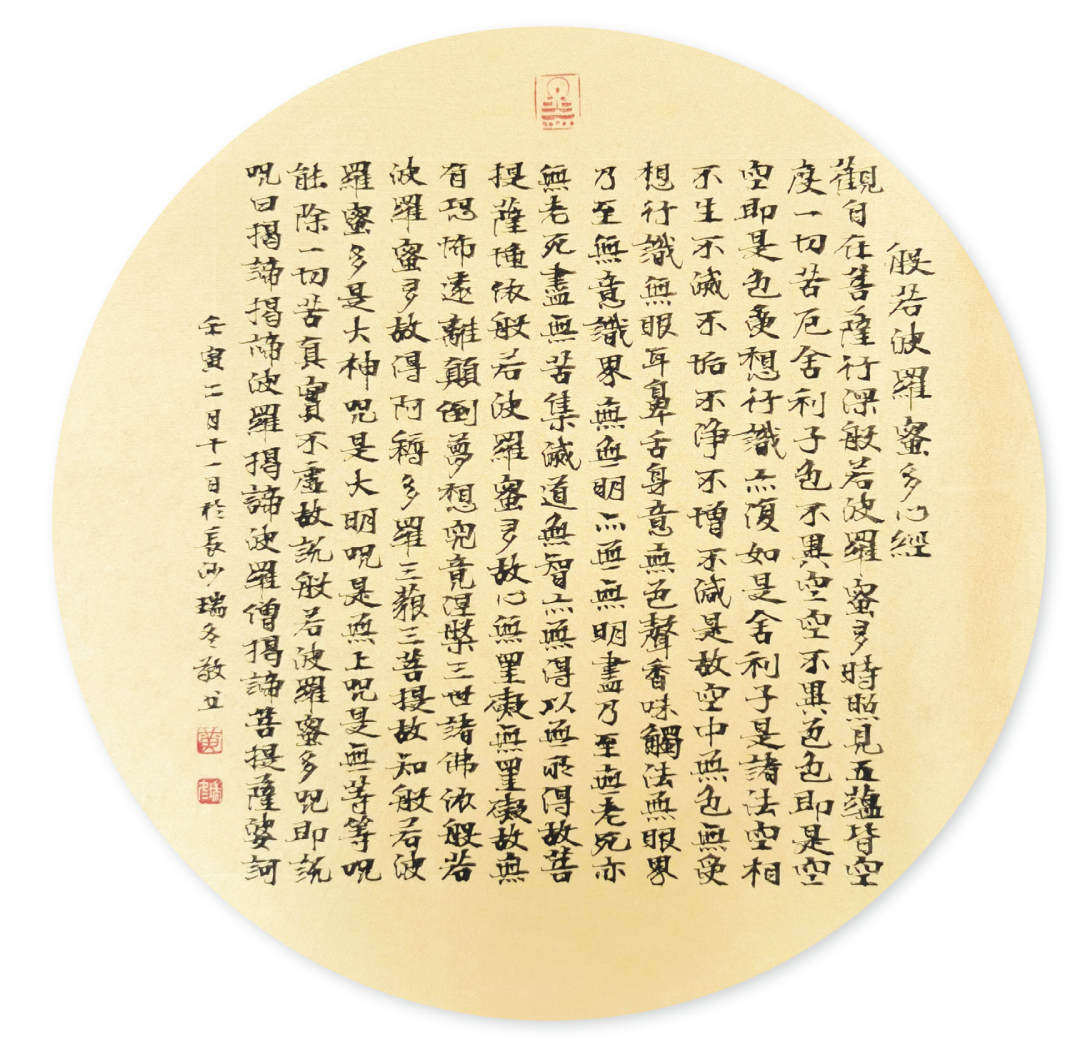 般若波羅蜜多心經
觀自在菩薩行深般若波羅蜜多時照見五蘊皆空
度一切苦厄舍利子色不異空空不異色色即是空
空即是色受想行識亦復如是舍利子是諸法空相
不生不滅不垢不淨不增不減是故空中無色無受
想行識無眼耳鼻舌身意無色聲香味觸法無眼界
乃至無意識界無無明亦無無明盡乃至無老死亦
無老死盡無苦集滅道無智亦無得以無所得故菩
提薩埵依般若波羅蜜多故心無罣礙無罣礙故無
有恐怖遠離顛倒夢想究竟涅槃三世諸佛依般若
波羅蜜多故得阿耨多羅三藐三菩提故知般若波
羅蜜多是大神咒是大明咒是無上咒是無等等咒
能除一切苦真實不虛故說般若波羅蜜多咒即說
咒曰揭諦揭諦波羅揭諦波羅僧揭諦菩提薩婆訶
壬寅二月十一日於長沙瑞冬敬书
黄